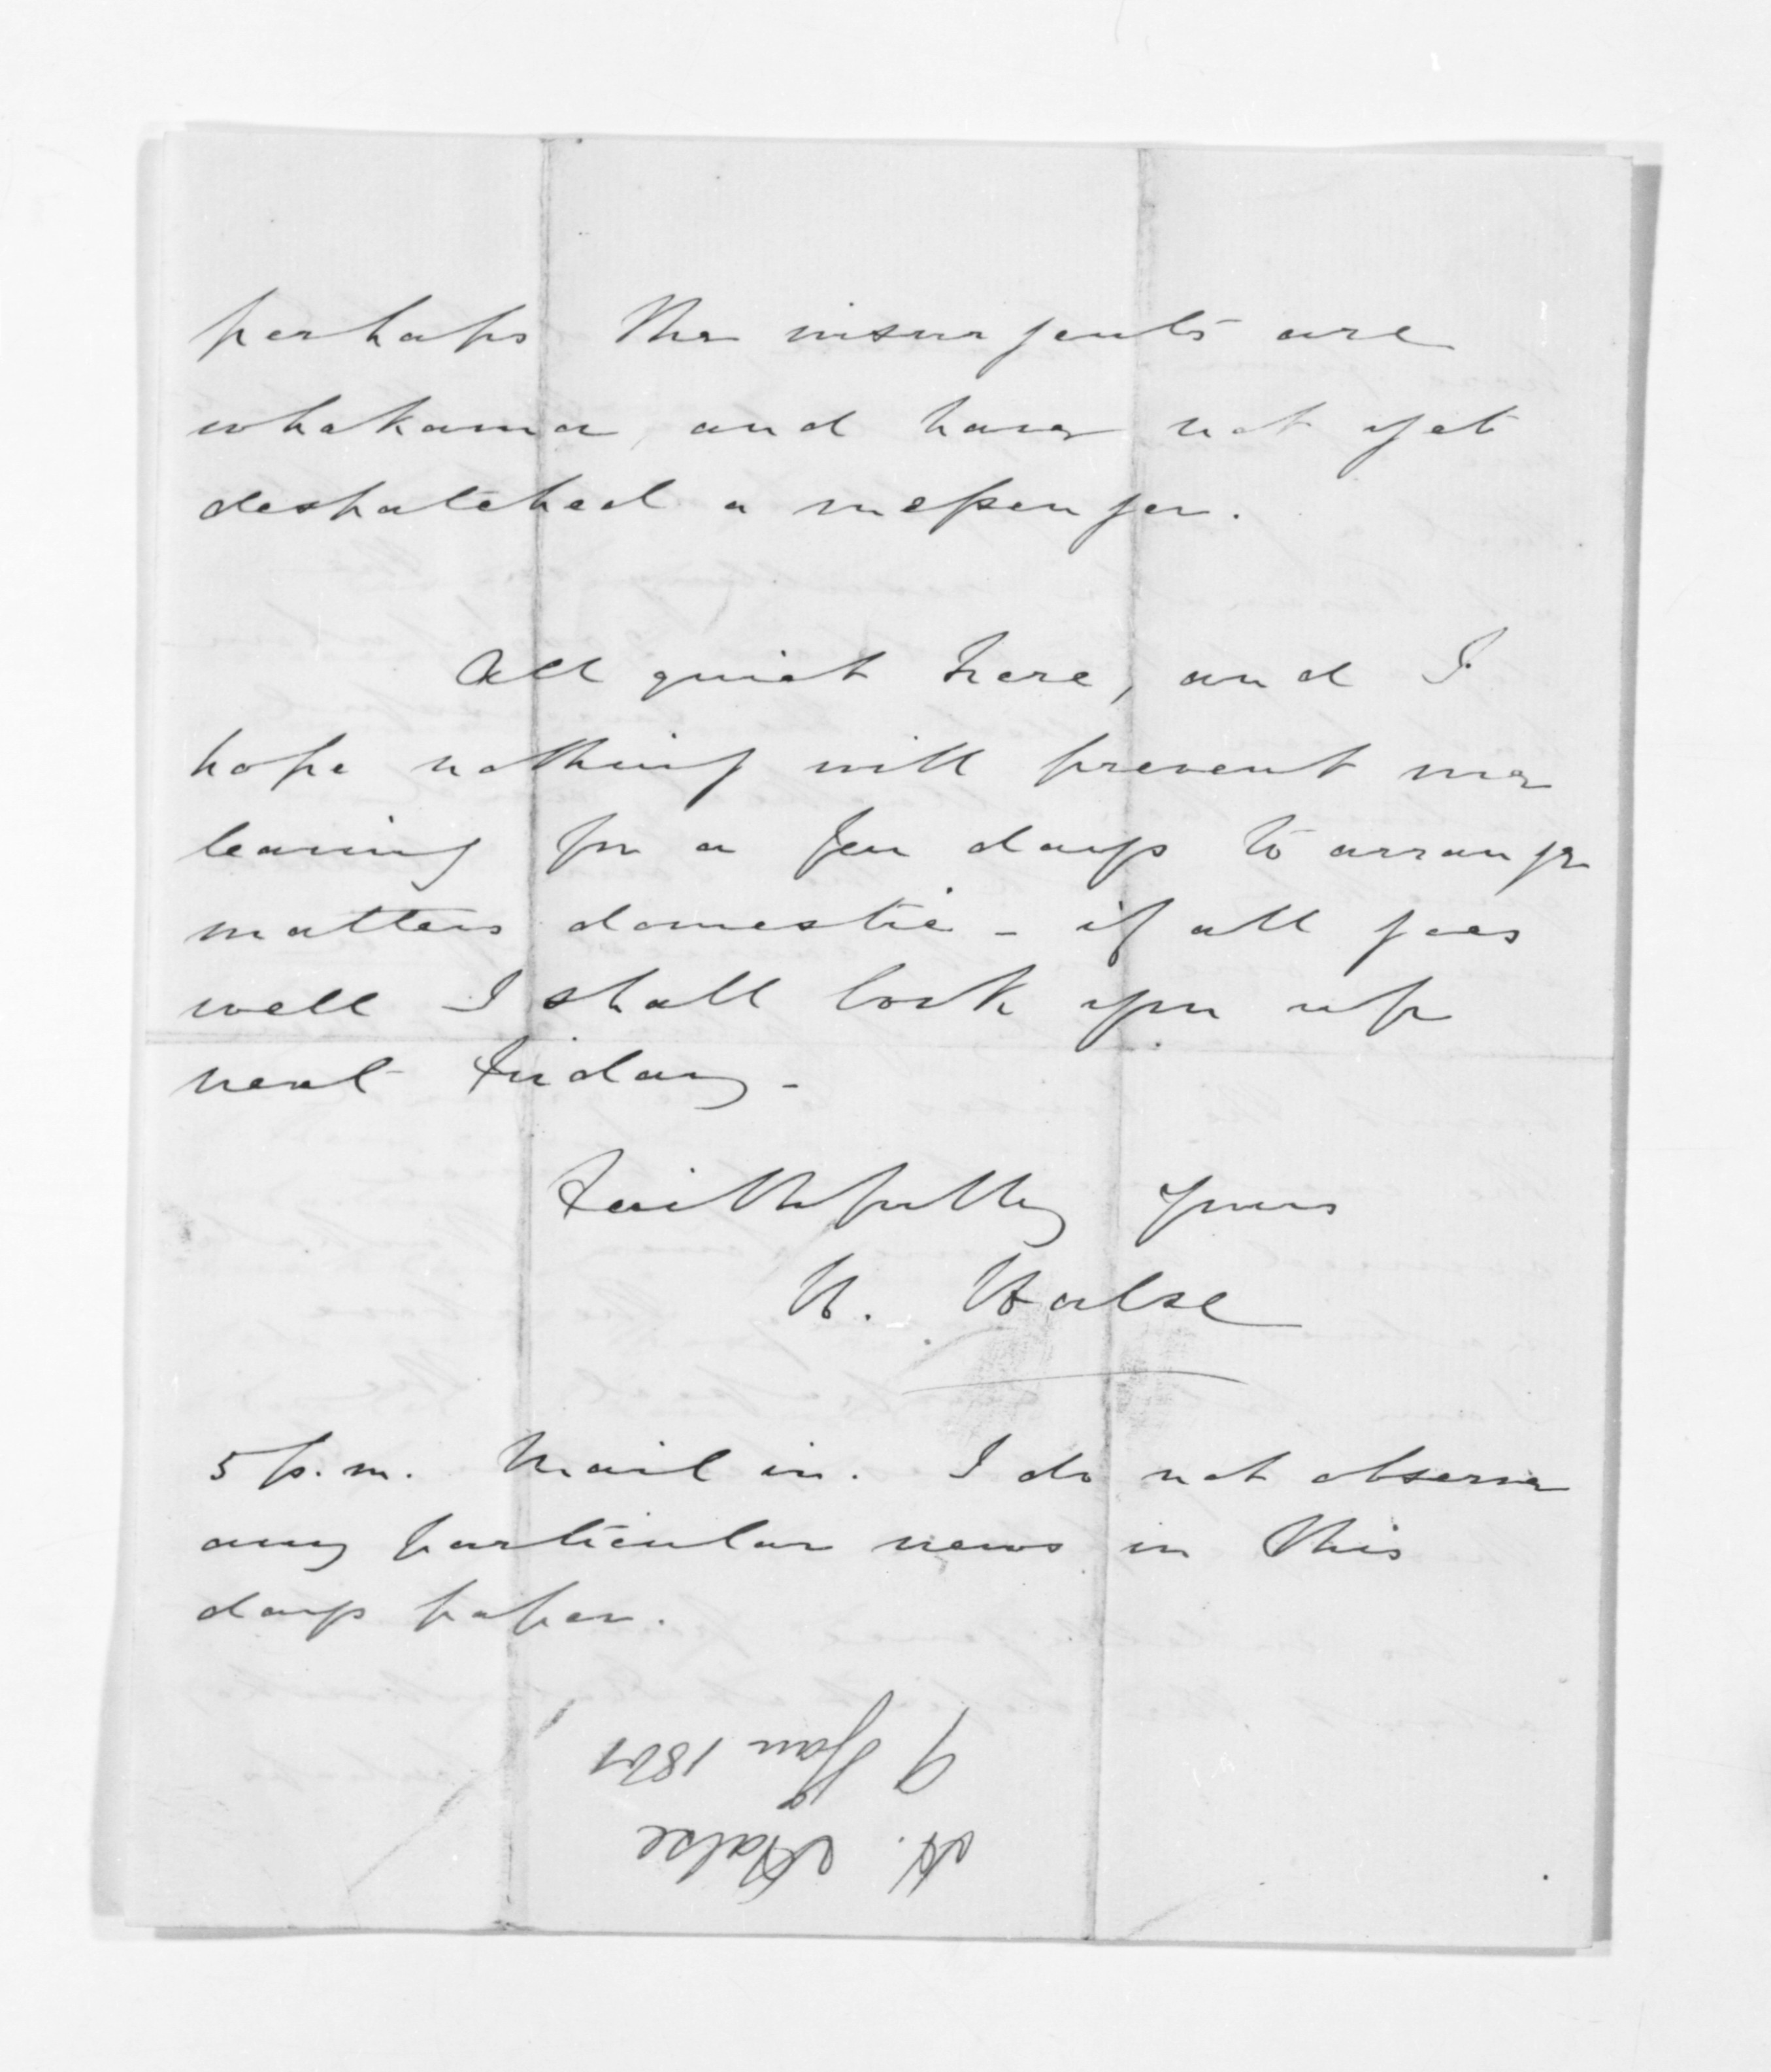 perhaps the insurgents are
whakama, and have not yet
despatched a messenger.
All quiet here, and I
hope nothing will prevent me
leaving for a few days to arrange
matters domestic - if all goes
well I shall look you up
next Friday -
Faithfully yours
H. Halse
5 p.m. Mail in. I do not observe
any particular news in this
days paper.
H. Halse
9 Jan 1861